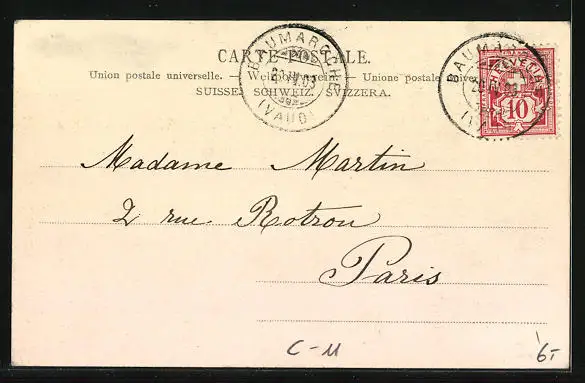 CARTE POSTALE.
Union postale universelle. — Weltpostverein. — Unione postale
SUISSE. SCHWEIZ. SVIZZERA.
BAUMAROCHE
(VAUD)
BAUMA
HELVETIA
10
Madame Martin
2 rue Rotrou
Paris
C-M
6-